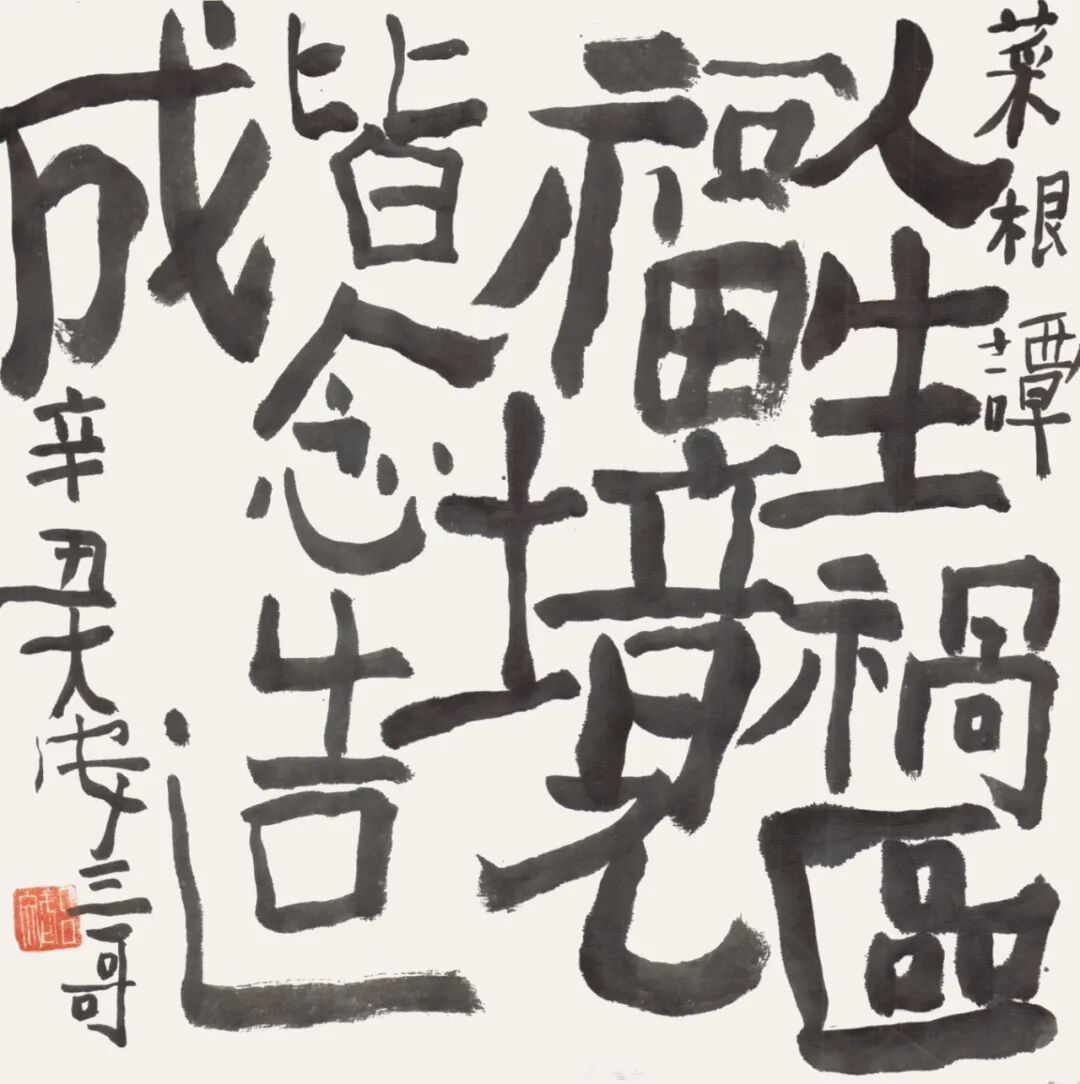 菜根譚
人生禍區
福境
皆念造
成
辛丑大安三哥